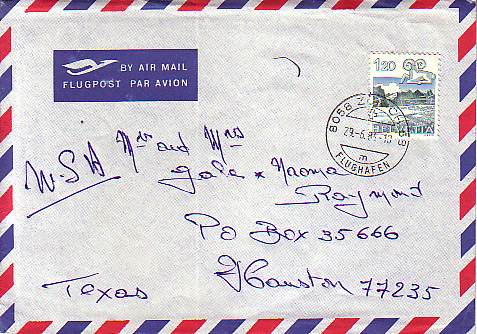 BY AIR MAIL
FLUGPOST PAR AVION
1.20
HELVETIA
8058 ZÜRICH
FLUGHAFEN
USA
Mr and Mrs
Gale & Naoma
Raymond
PO Box 35666
Houston 77235
Texas